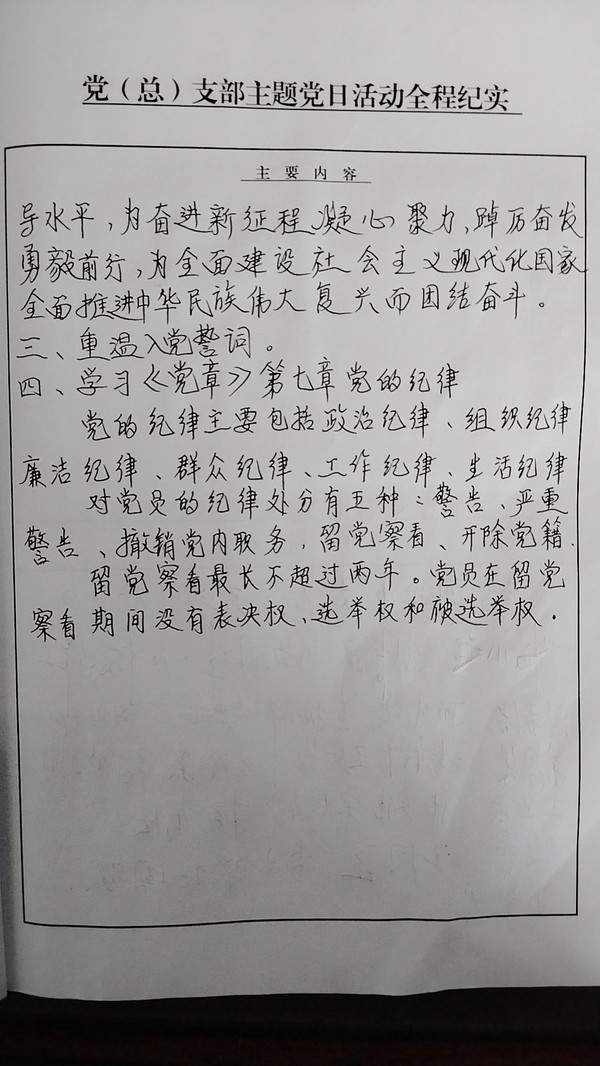 党（总）支部主题党日活动全程纪实
主要内容
导水平，为奋进新征程凝心聚力，踔厉奋发
勇毅前行，为全面建设社会主义现代化国家
全面推进中华民族伟大复兴而团结奋斗。
三、重温入党誓词。
四、学习《党章》第七章党的纪律
党的纪律主要包括政治纪律、组织纪律
廉洁纪律、群众纪律、工作纪律、生活纪律
对党员的纪律处分有五种：警告、严重
警告、撤销党内职务，留党察看、开除党籍.
留党察看最长不超过两年。党员在留党
察看期间没有表决权、选举权和被选举权.